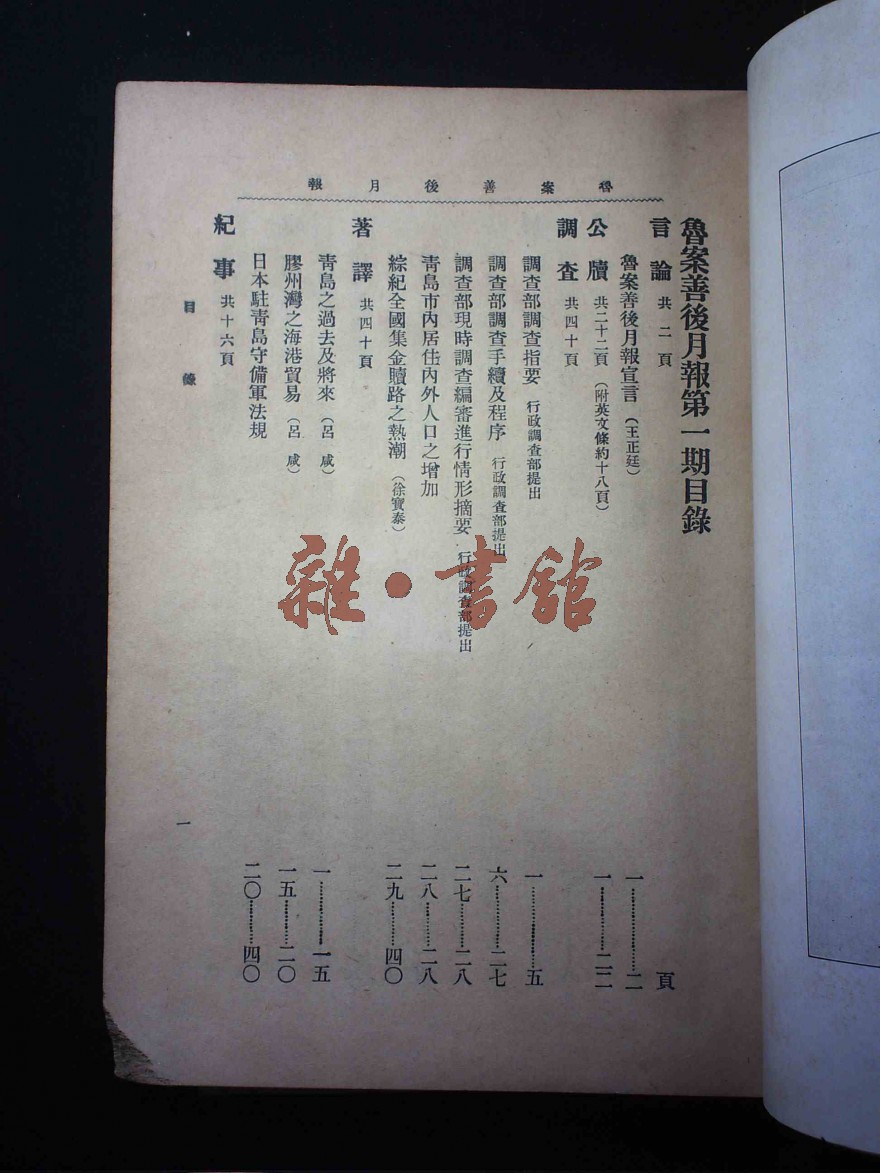 魯案善後月報
魯案善後月報第一期目錄
言論 共二頁 頁
魯案善後月報宣言(王正廷) 一…………二
公牘 共二十二頁(附英文條約十八頁) 一…………二二
調查 共四十頁
調查部調查指要 行政調查部提出 一…………五
調查部調查手續及程序 行政調查部提出 六…………二七
調查部現時調查編審進行情形摘要 行政調查部提出 二七…………二八
靑島市內居住內外人口之增加 二八…………二八
綜紀全國集金贖路之熱潮(徐寶泰) 二九…………四〇
著譯 共四十頁
靑島之過去及將來(呂咸) 一…………一五
膠州灣之海港貿易(呂咸) 一五…………二〇
日本駐靑島守備軍法規 二〇…………四〇
紀事 共十六頁
目錄
一
雜·書館